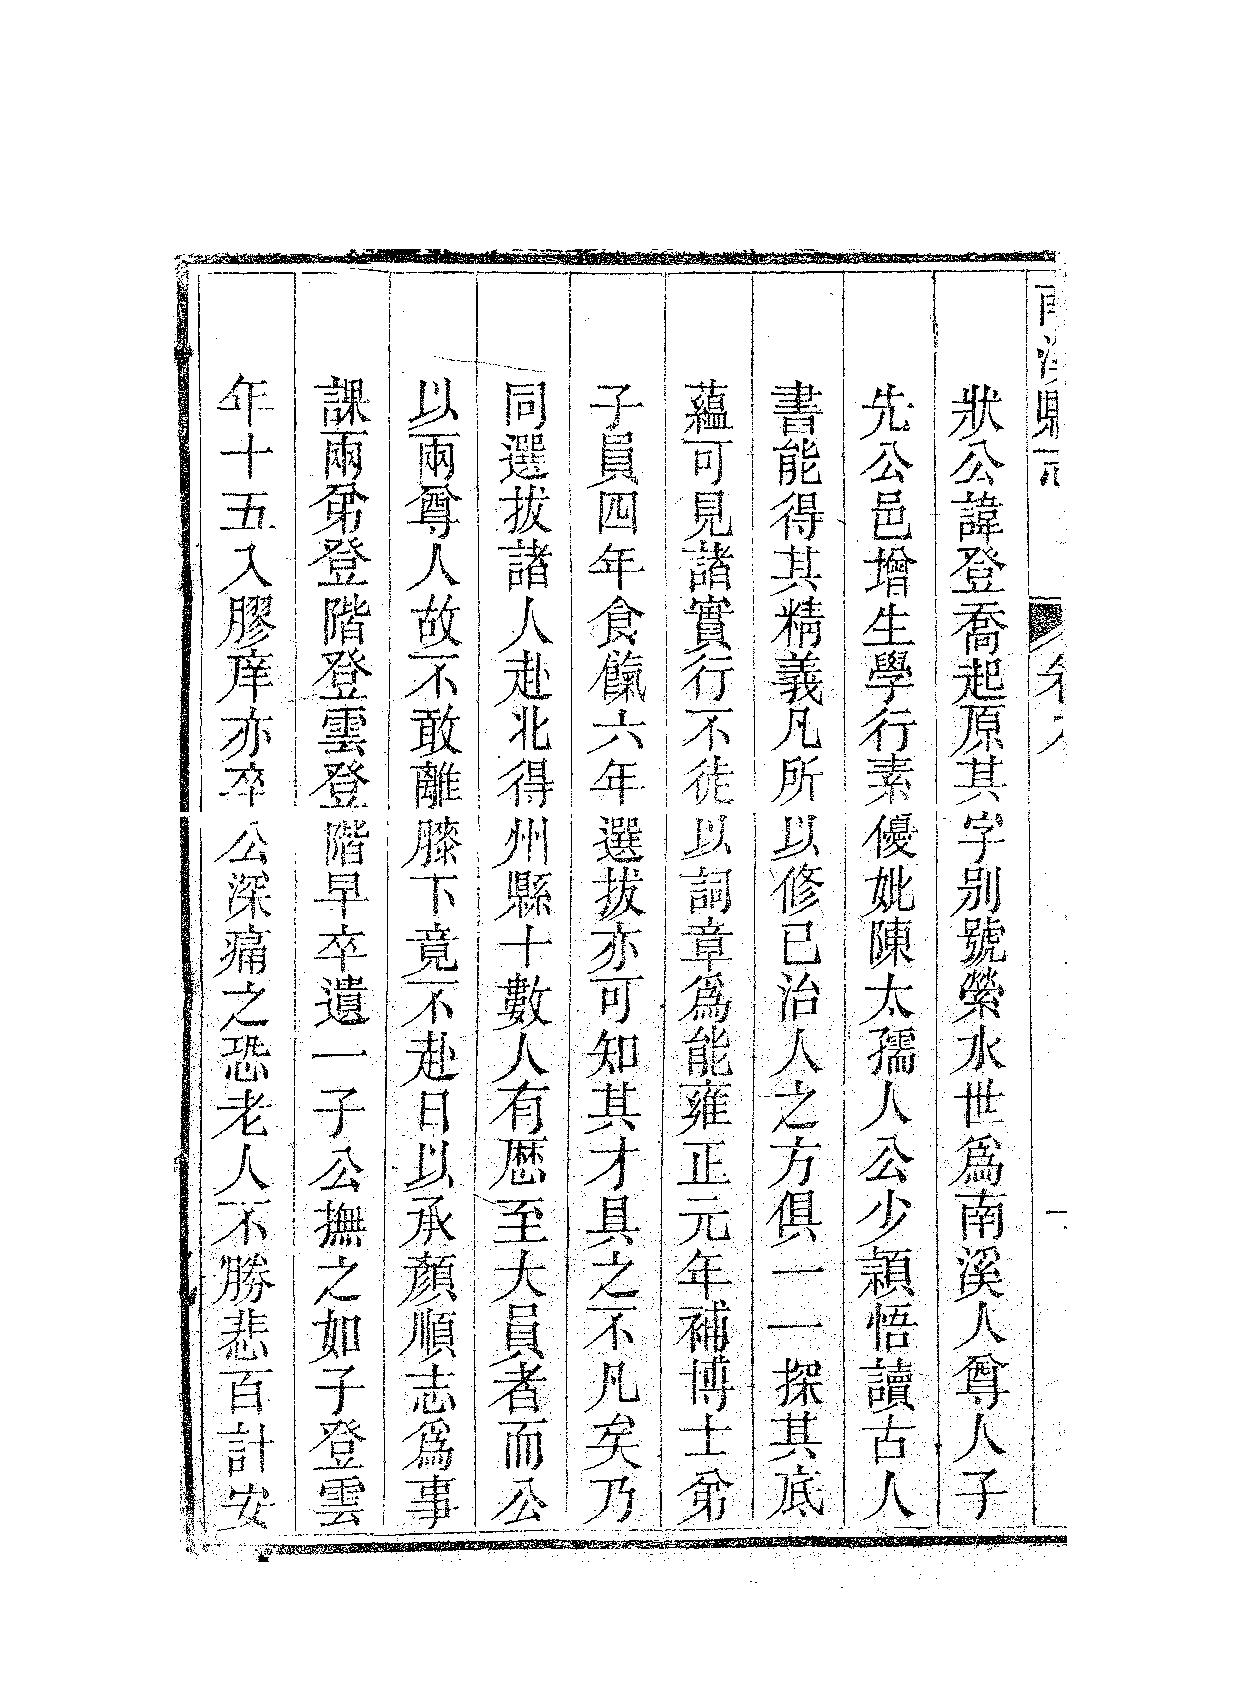 狀公諱登喬起原其字别號縈水世爲南溪人尊人子
先公邑增生學行素優妣陳太孺人公少穎悟讀古人
書能得其精義凡所以修已治人之方俱一一探其底
蘊可見諸實行不徒以詞章爲能雍正元年補博士弟
子員四年食餼六年選拔亦可知其才具之不凡矣乃
同選拔諸人赴北得州縣十數人有歴至大員者而公
以兩尊人故不敢離膝下竟不赴日以承顏順志爲事
課兩弟登階登雲登階早卒遺一子公撫之如子登雲
年十五入膠庠亦卒公深痛之恐老人不勝悲百計安